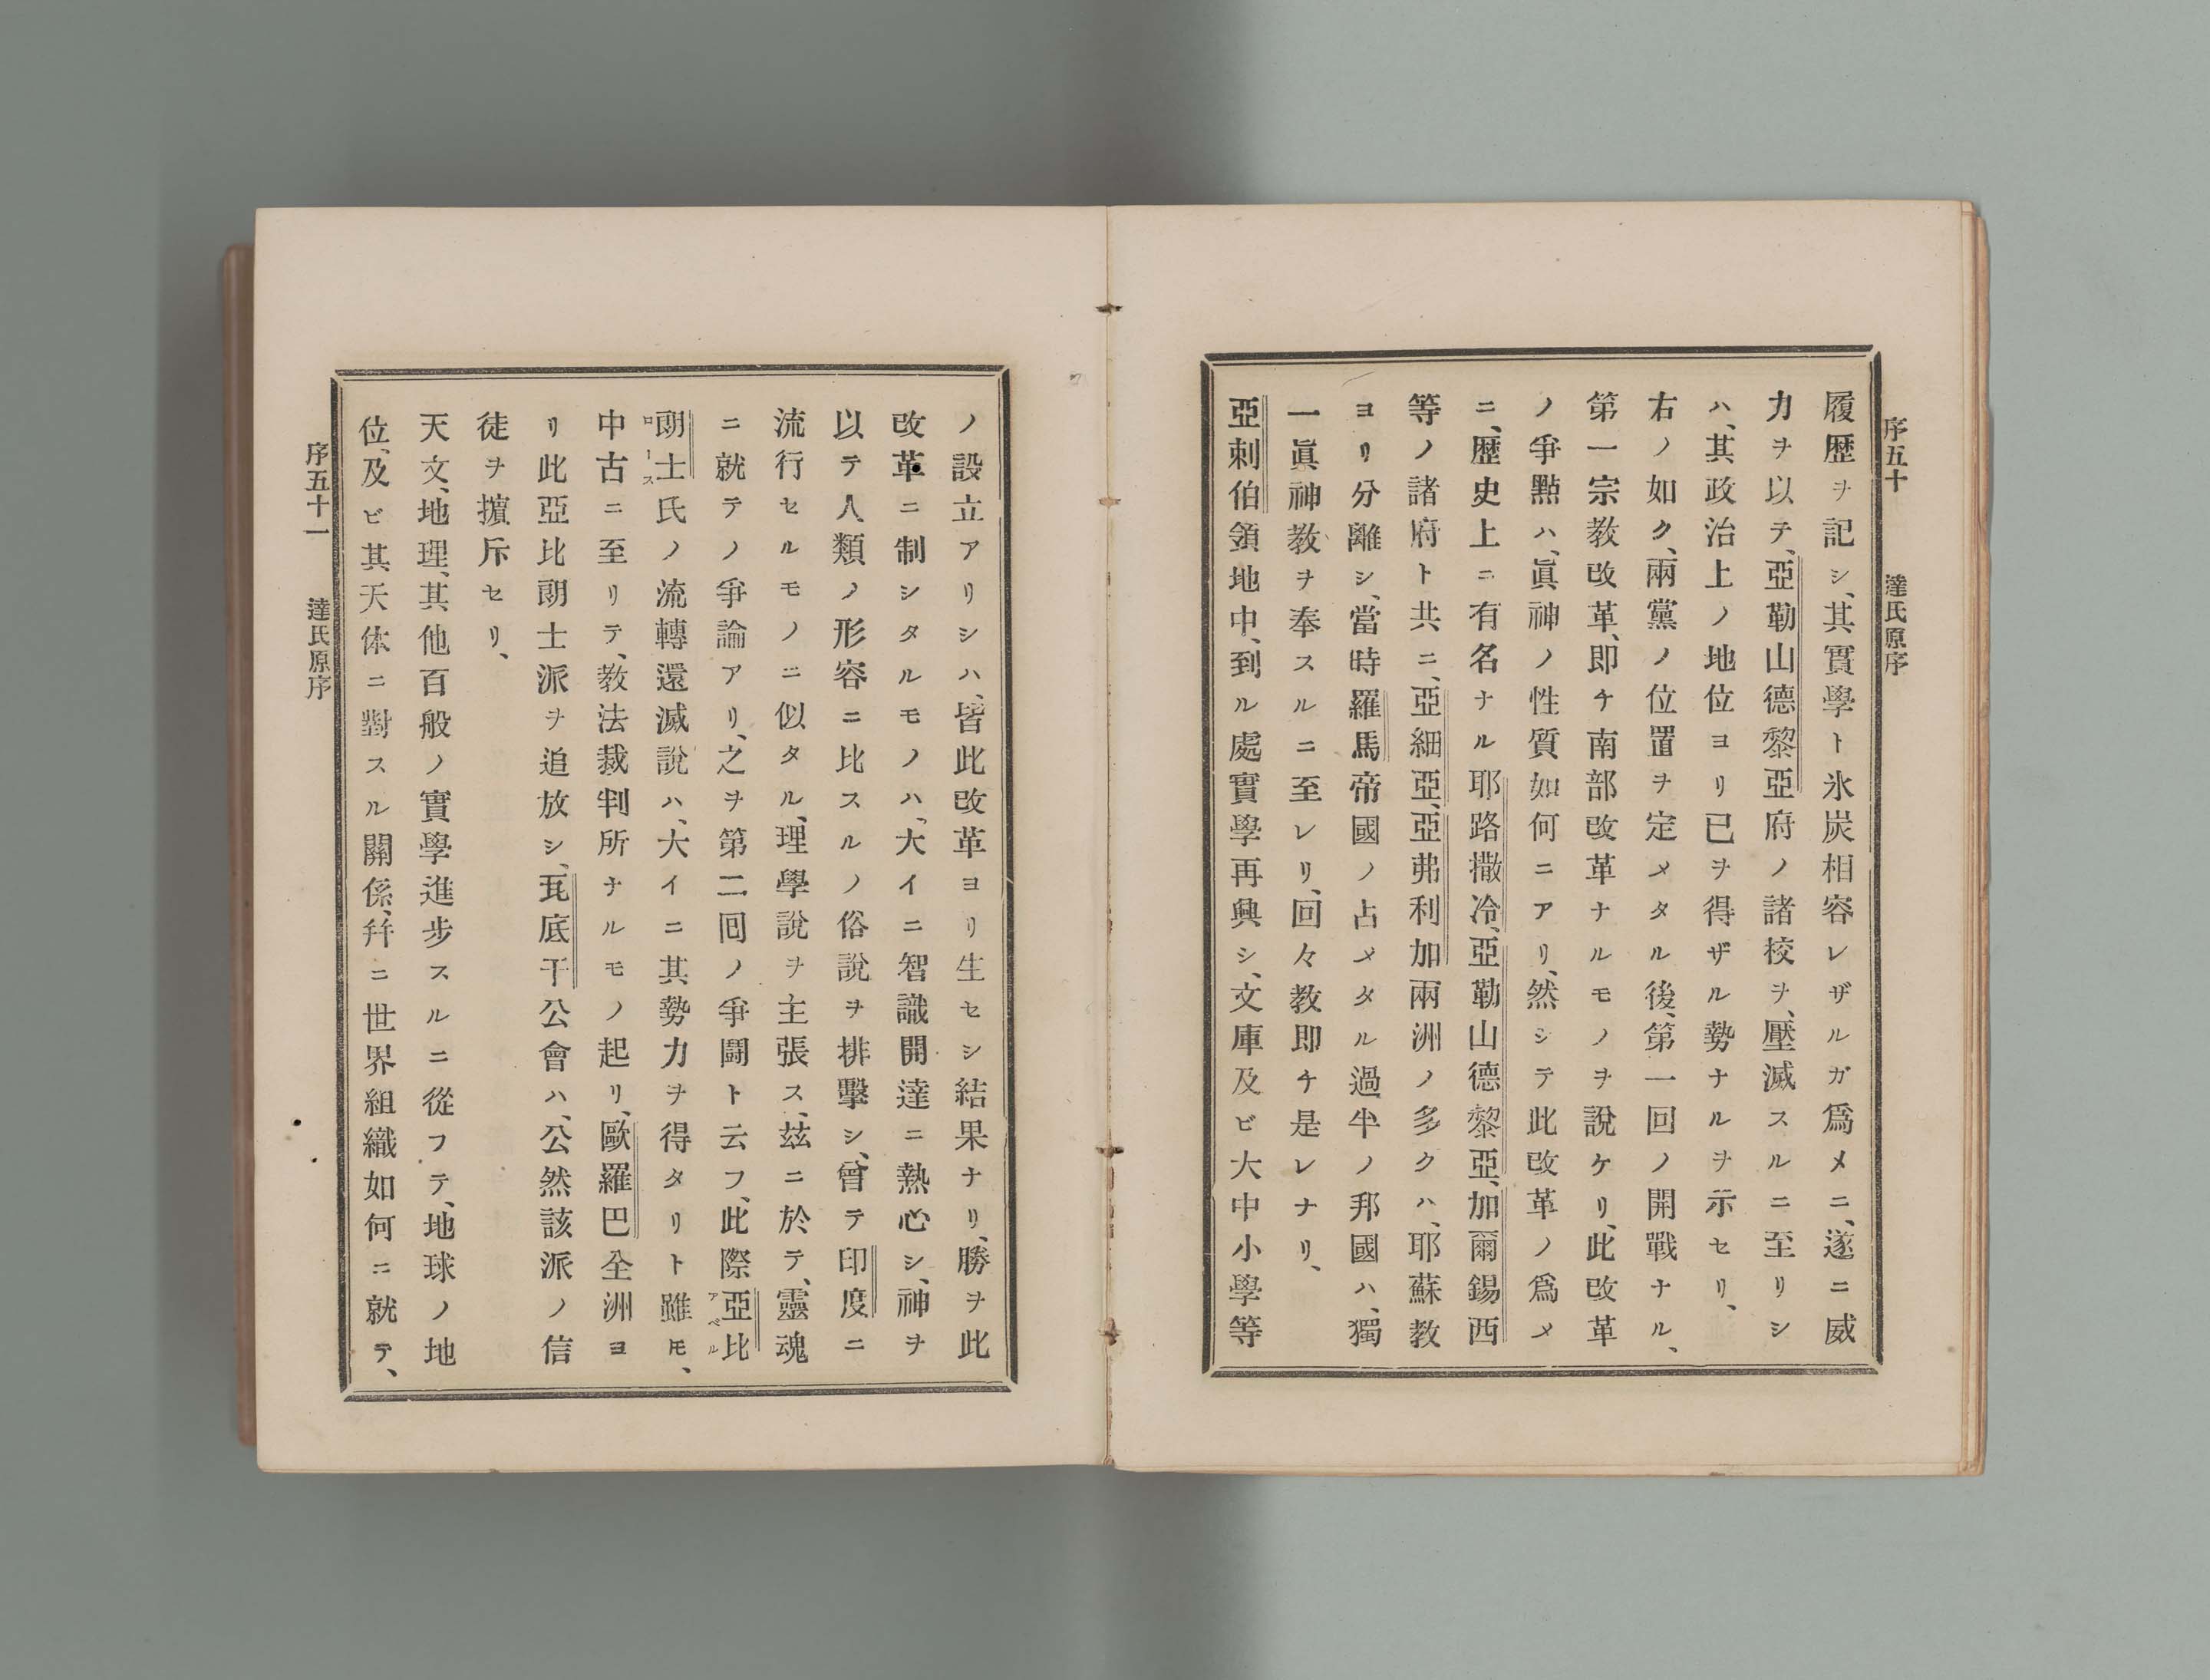 序五十　達氏原序
履歴ヲ記シ、其實學ト氷炭相容レザルガ爲メニ、遂ニ威
力ヲ以テ、亞勒山德黎亞府ノ諸校ヲ、壓滅スルニ至リシ
ハ、其政治上ノ地位ヨリ已ヲ得ザル勢ナルヲ示セリ、
右ノ如ク、兩黨ノ位置ヲ定メタル後、第一回ノ開戰ナル、
第一宗教改革、即チ南部改革ナルモノヲ說ケリ、此改革
ノ爭點ハ、眞神ノ性質如何ニアリ、然シテ此改革ノ爲メ
ニ、歴史上ニ有名ナル耶路撒冷、亞勒山德黎亞、加爾錫西
等ノ諸府ト共ニ、亞細亞、亞弗利加兩洲ノ多クハ、耶蘇教
ヨリ分離シ、當時羅馬帝國ノ占メタル過半ノ邦國ハ、獨
一眞神教ヲ奉スルニ至レリ、回々教即チ是レナリ、
亞剌伯領地中、到ル處實學再興シ、文庫及ビ大中小學等
ノ設立アリシハ、皆此改革ヨリ生セシ結果ナリ、勝ヲ此
改革ニ制シタルモノハ、大イニ智識開達ニ熱心シ、神ヲ
以テ人類ノ形容ニ比スルノ俗說ヲ排擊シ、曾テ印度ニ
流行セルモノニ似タル、理學說ヲ主張ス、茲ニ於テ、靈魂
ニ就テノ爭論アリ、之ヲ第二回ノ爭鬪ト云フ、此際亞比
アベル
朗士氏ノ流轉還滅說ハ、大イニ其勢力ヲ得タリト雖モ、
ロース
中古ニ至リテ、教法裁判所ナルモノ起リ、歐羅巴全洲ヨ
リ此亞比朗士派ヲ追放シ、瓦底干公會ハ、公然該派ノ信
徒ヲ擯斥セリ、
天文、地理、其他百般ノ實學進步スルニ從フテ、地球ノ地
位、及ビ其天体ニ對スル關係、幷ニ世界組織如何ニ就テ、
序五十一　達氏原序